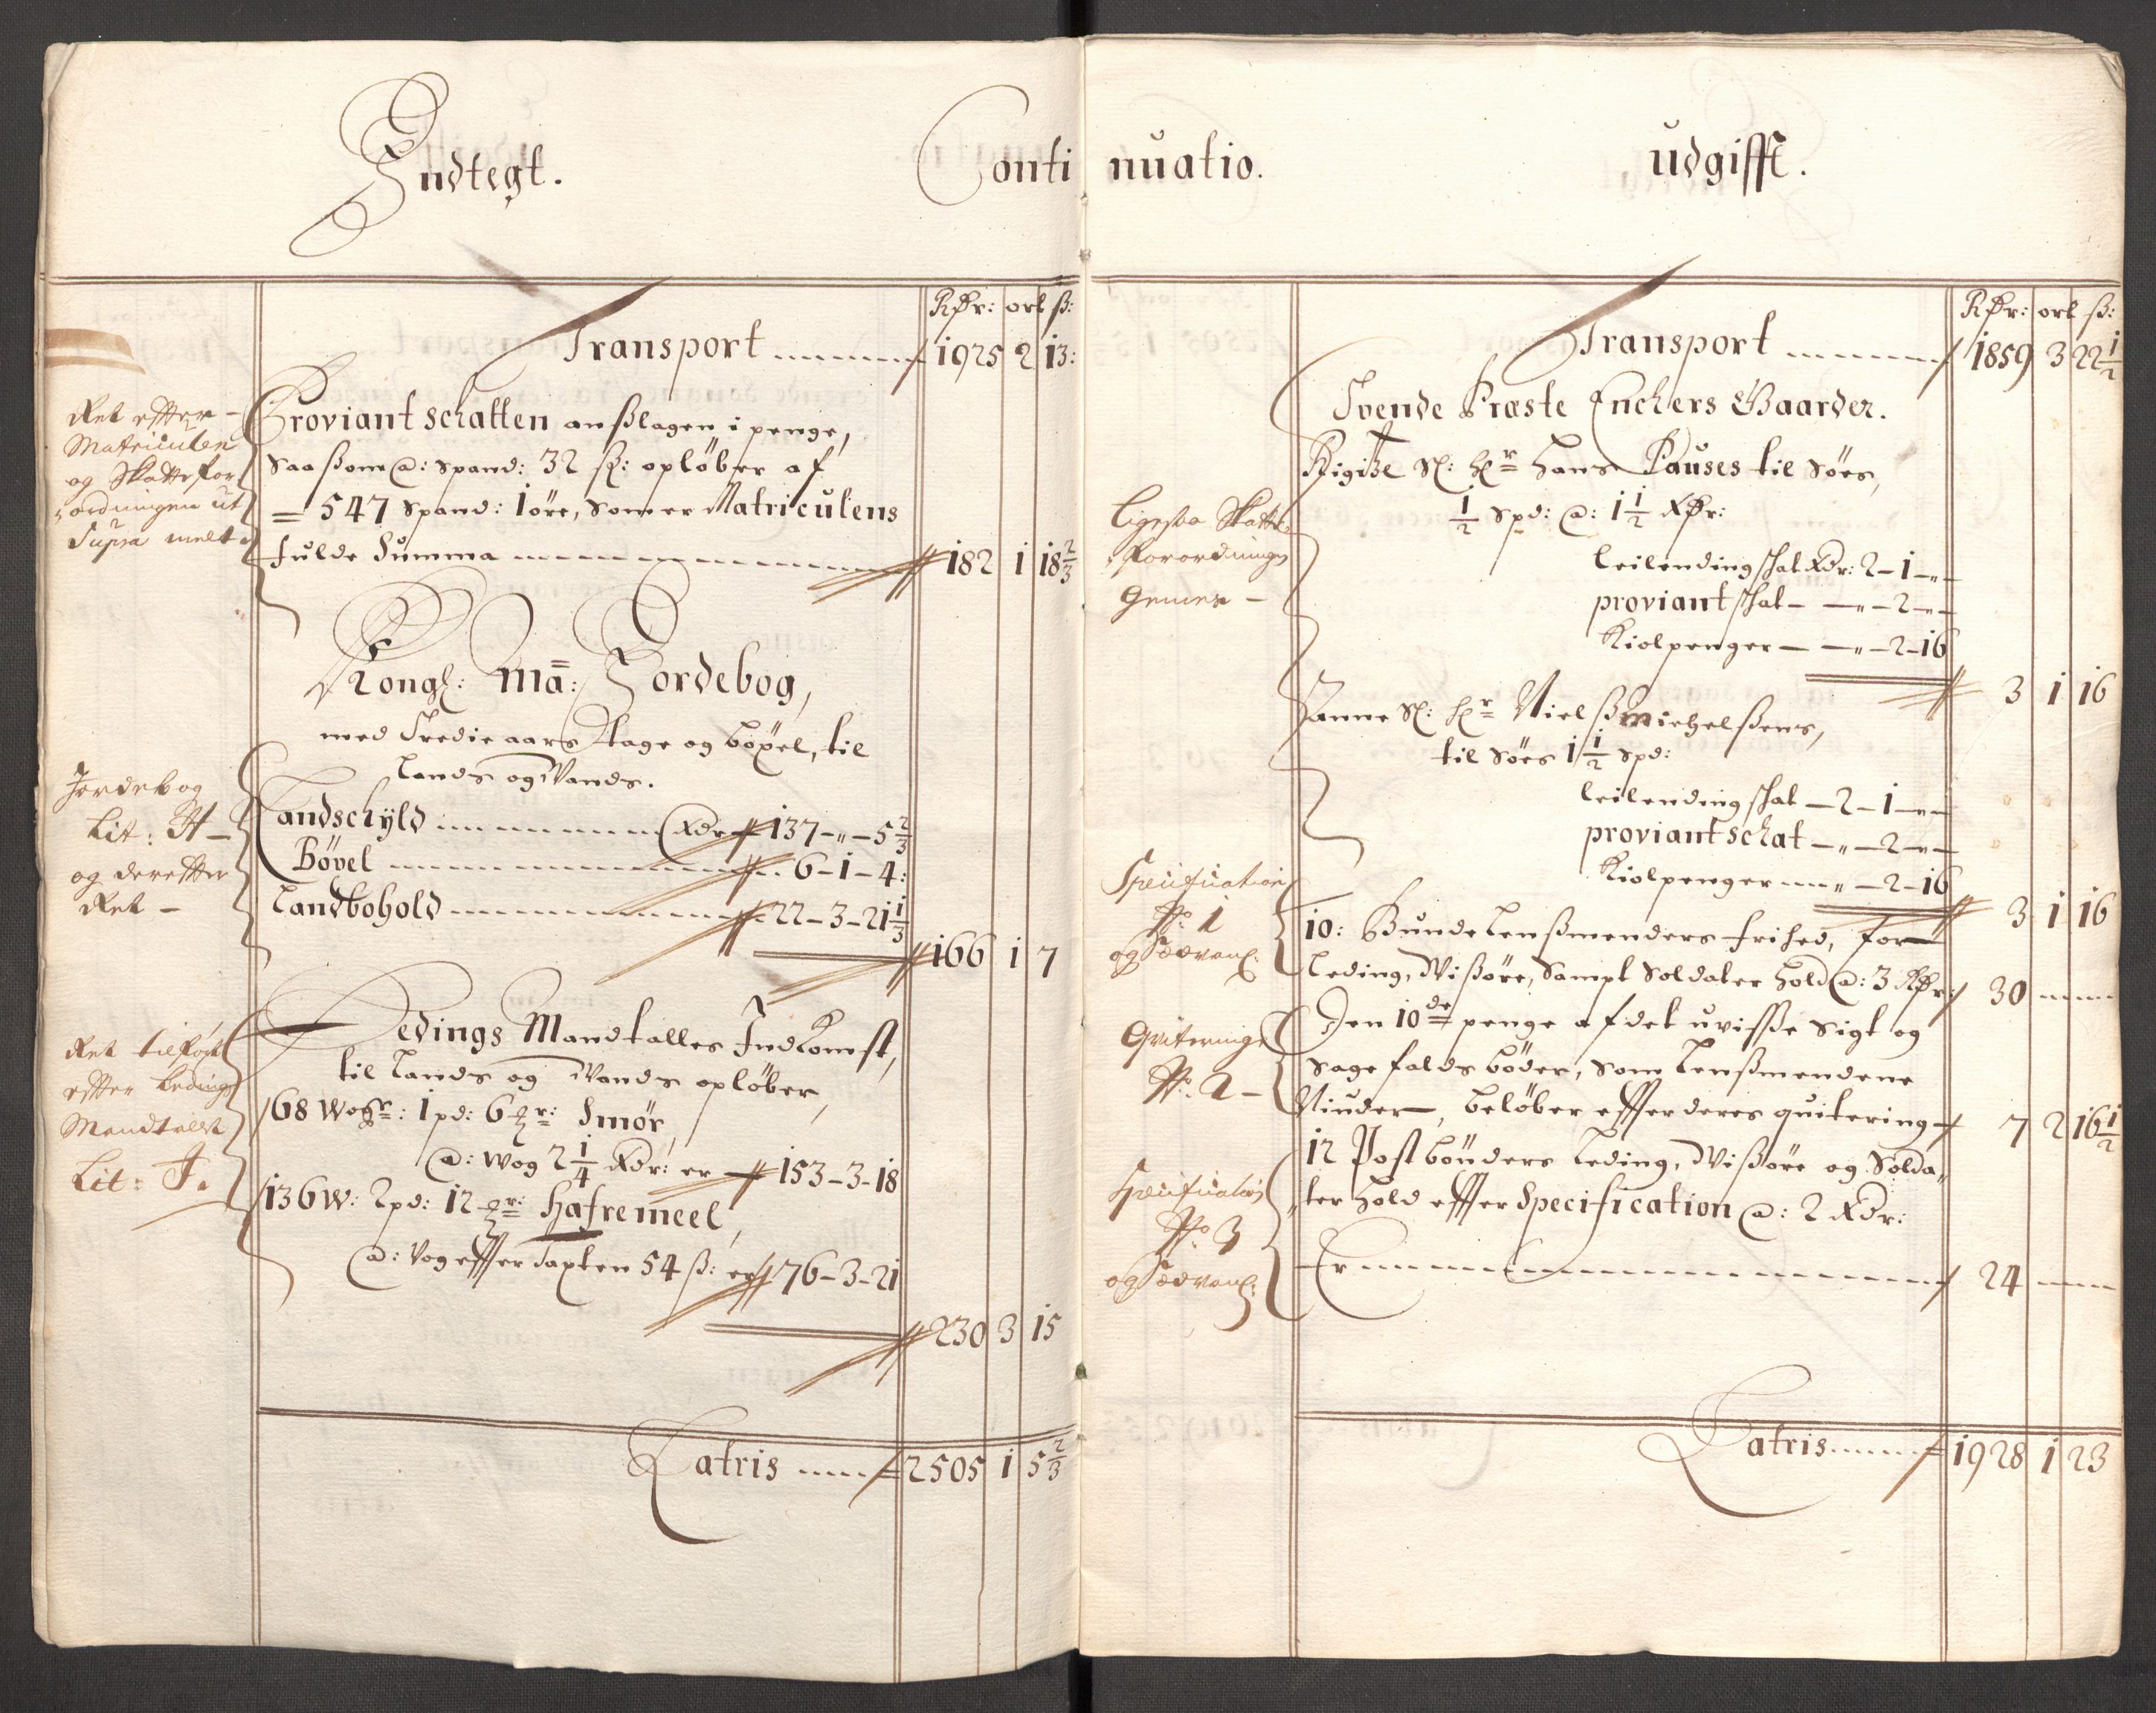 Indtegt.
Conti nuatio.
udgifft.
Rdr: ort ß:
Transport 1925 2 13:
Ret efter
Matriculen
og Skatte for
ordningen ut
Supra melt
Proviant schatten anßlagen i penge,
saa ßom @: spand: 32 ß: opløber af
547 spand: 1 øre, som er Matriculens
fulde Summa 182 1 18 2/3
Kongl: Ma: Jordebog,
med Tredie aars tage og böxel, til
Lands og Vands.
Jordebog
Lit: H
og derefter
Ret
Landschyld Rdr 137-"-5 2/3
Bövel 6-1-4:
Landbohold 22-3-21 1/3
166 1 7
Ret tilført
efter Ledings
Mandtallet
Lit: J.
Ledings Mandtalles Indkomst,
til Lands og Vands opløber,
68 Woger: 1 pd: 6 mr: Smør,
@: Wog 2 1/4 Rdr: er 153-3-18
136 W: 2 pd: 12 mr: Hafremeel,
@: Vog effter Taxten 54 ß: er 76-3-21
230 3 15
Latris 2505 1 5 2/3
Rdr: ort ß:
Transport 1859 3 22 1/2
Tvende Præste Enchers Gaarder.
Ligesaa Skatte
forordningen
Gemes
Birgitte Sl: Hr Hans Pauses til Søes,
1/2 spd: @: 1 1/2 Rdr:
leilending schat Rdr: 2-1-"-
proviant schat - -"-2-"-
Kiolpenger - -"-2-16
3 1 16
Sanne Sl: Hr Nielß Michelßens,
til Søes 1 1/2 spd:
leilending schat -2-1-"-
proviant schat -"-2-"-
Kiolpenger "-2-16
3 1 16
Specification
No. 1
og Sædvanl:
10: Bunde Lenßmenders frihed, for
Leding, Wißøre, Sampt Soldater hold @: 3 Rdr 30
Qvitering
No. 2
Den 10de penge af det uvisse Sigt og
Sagefalds bøder, som Lenßmendene
Niuder, beløber effter deres quitering 7 2 16 1/2
Specification
No. 3
og Sædvanl:
12 Postbønders Leding, Wißøre og Solda-
ter hold effter Specification @: 2 Rdr:
Er 24
Latris 1928 1 23